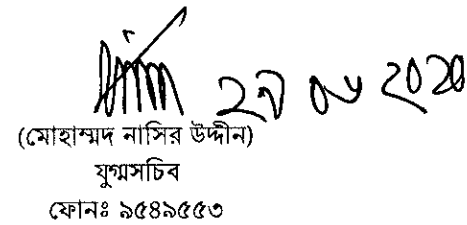 ২০২০
(মোহাম্মদ নাসির উদ্দীন)
যুগ্মসচিব
ফোনঃ ৯৫৪৯৫৫৩